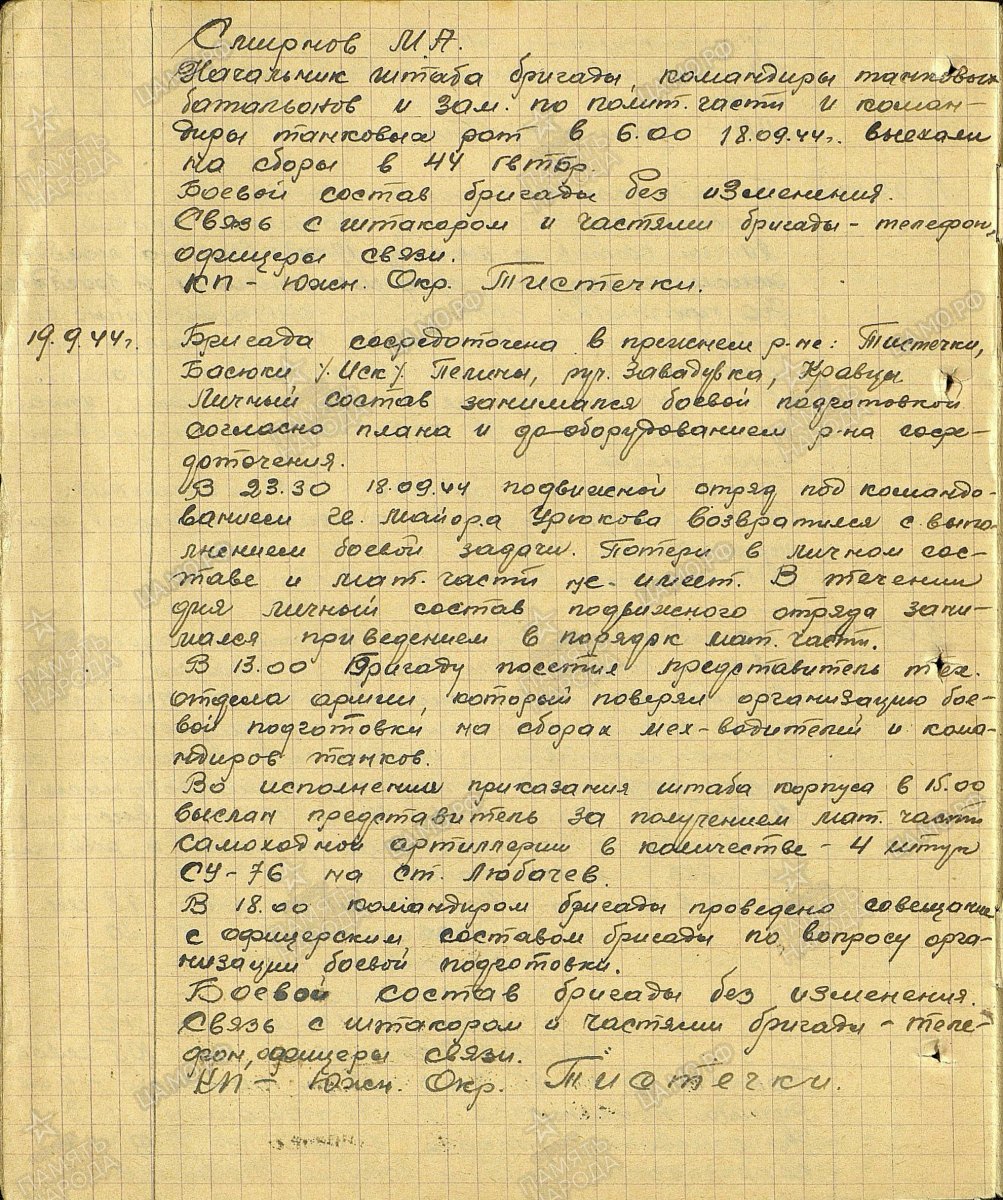 Смирнов М.А.
Начальник штаба бригады, командиры танковых
батальонов и зам. по полит. части и коман-
диры танковых рот в 6.00 18.09.44г. выехали
на сборы в 44 гвтбр.
Боевой состав бригады без изменения.
Связь с штакором и частями бригады - телефон,
офицеры связи.
КП - южн. Окр. Тистечки.
19.9.44г.
Бригада сосредоточена в прежнем р-не: Тистечки,
Басюки /Иск/ Пелины, руч. Завадувка, Кравцы
Личный состав занимался боевой подготовкой
согласно плана и до-оборудованием р-на сосре-
доточения.
В 23.30 18.09.44 подвижной отряд под командо-
ванием гв. майора Урюкова возвратился с выпо-
лнением боевой задачи. Потери в личном сос-
таве и мат. части не-имеет. В течении
дня личный состав подвижного отряда зани-
мался приведением в порядок мат. части.
В 13.00 Бригаду посетил представитель тех.
отдела армии, который поверял организацию бое-
вой подготовки на сборах мех-водителей и кома-
ндиров танков.
Во исполнении приказания штаба корпуса в 15.00
выслан представитель за получением мат. части
самоходной артиллерии в количестве - 4 штук
СУ-76 на ст. Любачев.
В 18.00 командиром бригады проведено совещание
с офицерским составом бригады по вопросу орга-
низации боевой подготовки.
Боевой состав бригады без изменения.
Связь с штакором и частями бригады - теле-
фон, офицеры связи.
КП - Южн. Окр. Тистечки.